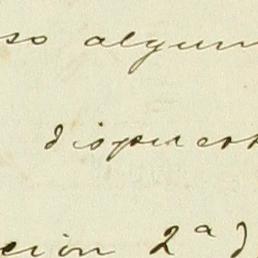 so algun
dispuest
cion 2ª d